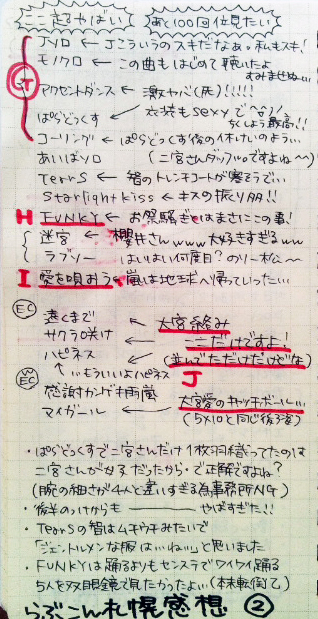 ここまるやばい あと100回位見たい
Jソロ ← Jこういうのスキだなぁ。私もスキ!
モノクロ ← この曲もはじめて聴いたよ
すみませぬ…
J
アクセントダンス ← 激ヤバ(死)!!!!
ぱらどっくす ← 衣装もsexyで
らくしょう最高!!
コーリング ← ぱらどっくす後の休けいのよう…
あいばソロ (二宮さんダッフルですよね〜〜)
TearS ← 智のトレンチコートが
Starlight kiss ← キスの振り付!!
H FUNKY ← お祭騒ぎとはまさにこの事!
迷宮 ← 櫻井さんwww 大好きすぎるww
ラブソー ← はいはい何度目?のソー松〜
I 愛を唄おう ← 嵐は地球へ帰っていった…
EC
遠くまで ← 大宮絡み
サクラ咲け ← ここだけですよ!
ハピネス (並んでただけだけどな)
↑いもういいよハピネス
J
W EC
感謝カンゲキ雨嵐
マイガール ← 大宮愛のキャッチボール…
(5×10と同じ後ろ姿)
・ぱらどっくすで二宮さんだけ1枚羽織ってたのは
二宮さんが女子だったから・で正解ですよね?
(腕の細さが4人と違いすぎる為事務所NG)
・後半のっけから やばすぎた!!
・TearSの智はムチウチみたいで
「ジェントルメンな服はいいねぃ」と思いました
・FUNKYは踊るよりもセンステでワイワイ踊る
5人を双眼鏡で見たかったよぃ(本末転倒乙)
らぶこん札幌感想 ②